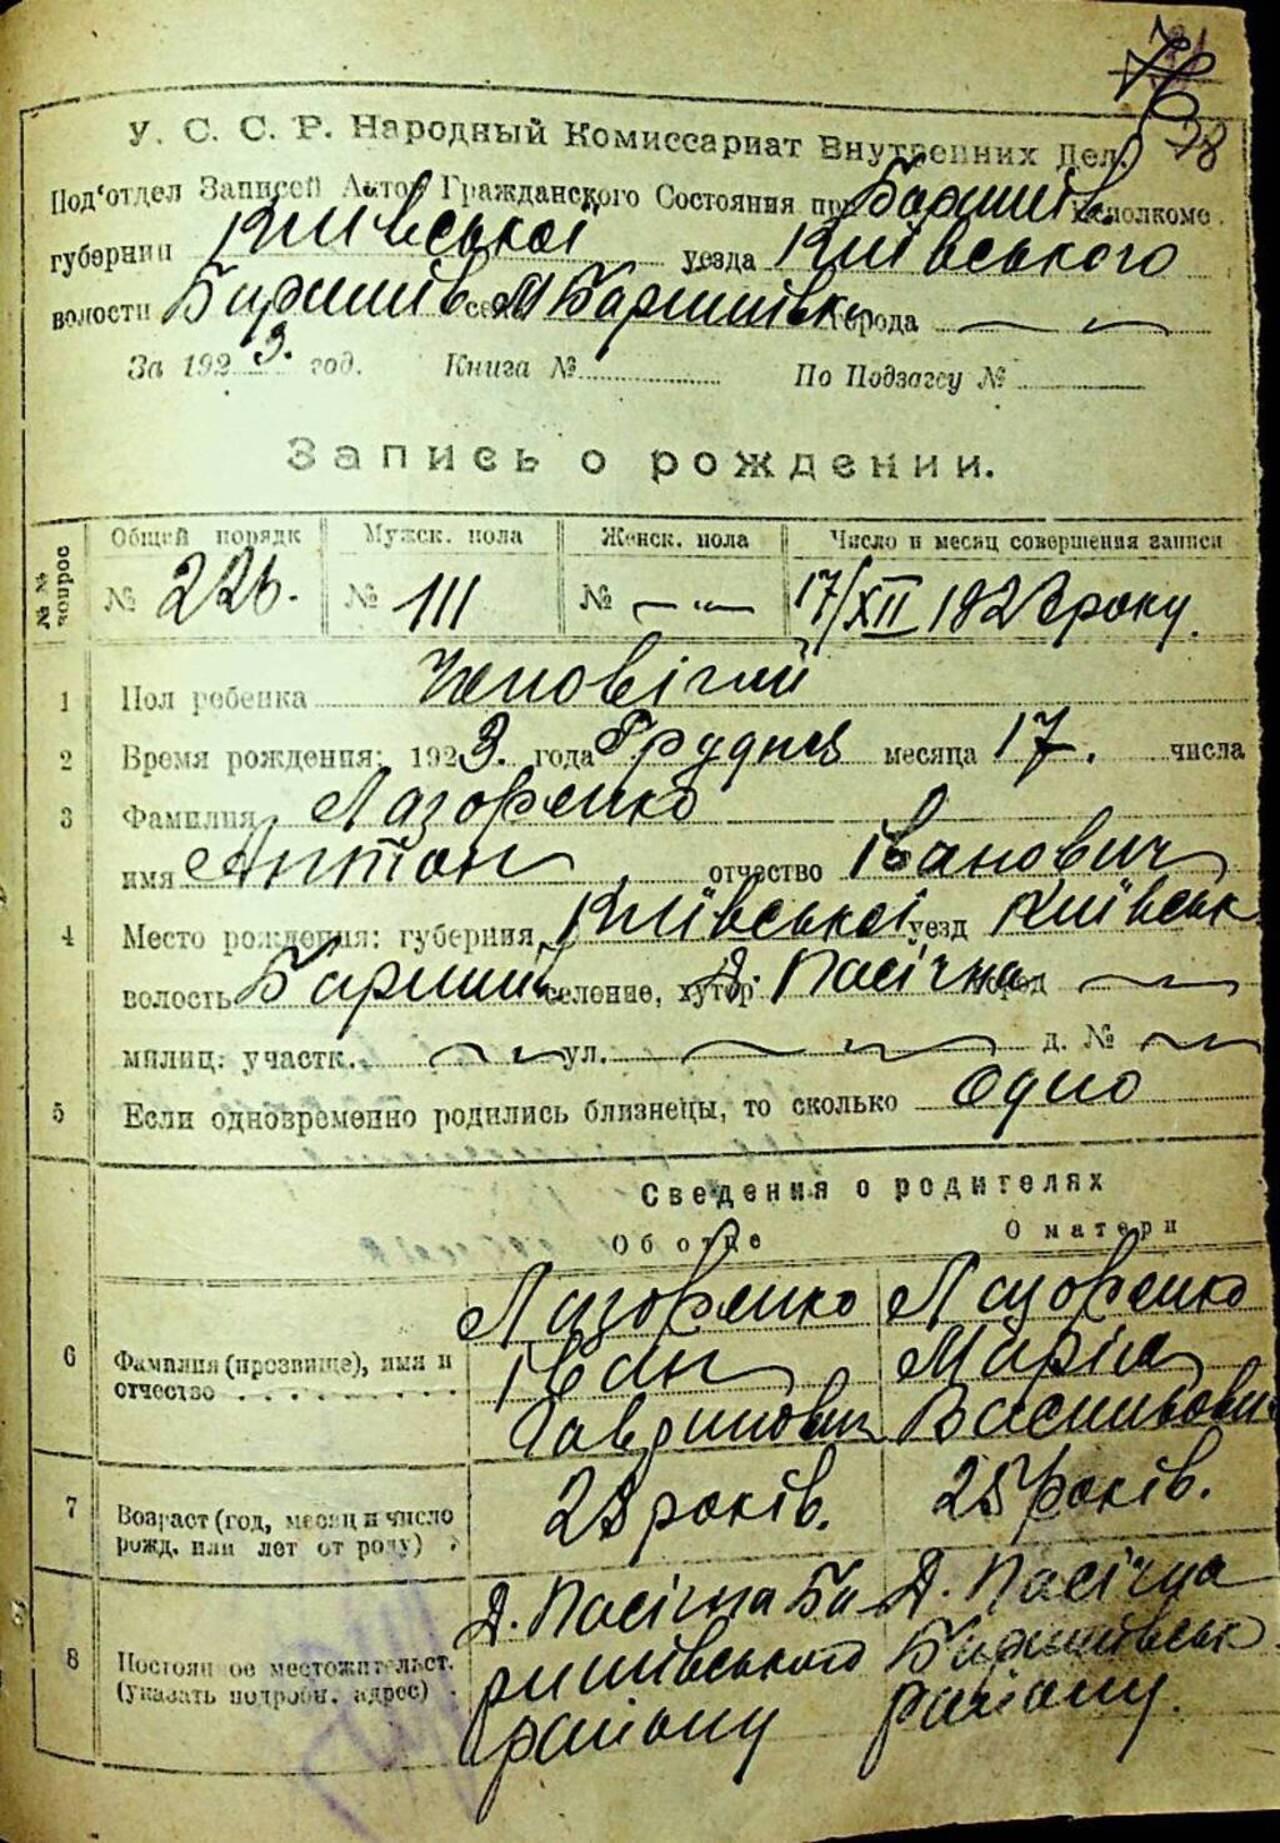 78
У. С. С. Р. Народный Комиссариат Внутренних Дел.
Под‘отдел Записей Актов Гражданского Состояния при Баришів. исполкоме.
губернии Київської уезда Київського
волости Баришів. села М Баришівка города
За 1923. год. Книга № По Подзагсу №
Запись о рождении.
№№ вопрос Общей порядк Мужск. пола Женск. пола Число и месяц совершения записи
№ 226. № 111 № 17/XII 1923 року.
1 Пол ребенка Чоловічий
2 Время рождения: 1923. года Грудня месяца 17. числа
3 Фамилия Лазоренко
имя Антон отчество Іванович
4 Место рождения: губерния Київської уезд Київськ
волость Баришів селение, хутор Д. Пасічна город
милиц. участк. ул. д. №
5 Если одновременно родились близнецы, то сколько Одно
Сведения о родителях
Об отце О матери
Лазоренко Лазоренко
6 Фамилия (прозвище), имя и Іван Марія
отчество Гаврилович Васильовн
7 Возраст (год, месяц и число 28 років. 25 років.
рожд. или лет от роду)
Д. Пасічна Ба Д. Пасічна
8 Постоянное местожительст. ришівського Баришівськ
(указать подробн. адрес) району району.